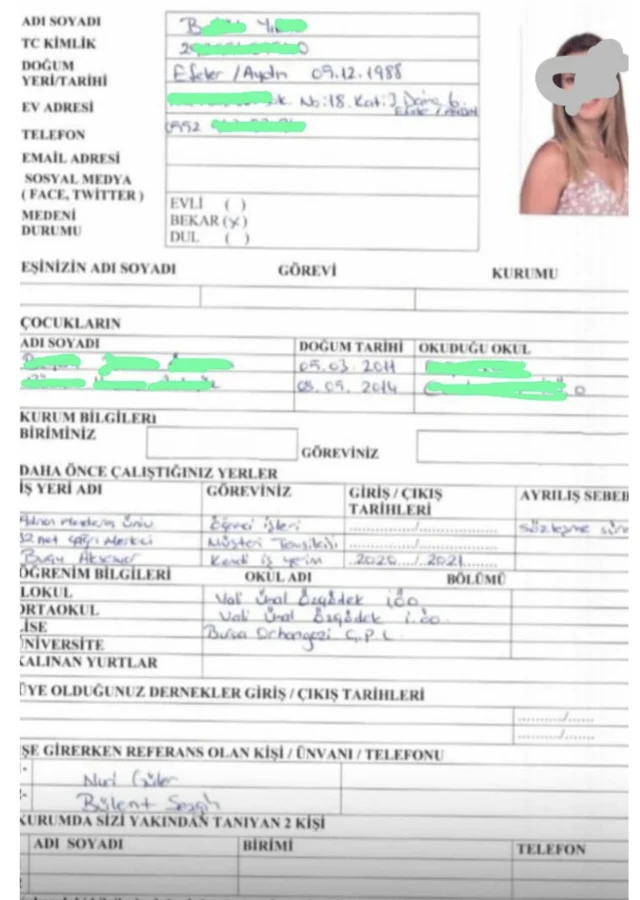 ADI SOYADI
TC KİMLİK
DOĞUM
YERİ/TARİHİ
Efeler / Aydın 09.12.1988
EV ADRESİ
No:18. Kat:3 Daire 6.
TELEFON
0552
EMAIL ADRESİ
SOSYAL MEDYA
( FACE, TWİTTER )
MEDENİ
DURUMU
EVLİ ( )
BEKAR (x)
DUL ( )
EŞİNİZİN ADI SOYADI GÖREVİ KURUMU
ÇOCUKLARIN
ADI SOYADI DOĞUM TARİHİ OKUDUĞU OKUL
05.03.2011
08.09.2014
KURUM BİLGİLERİ
BİRİMİNİZ GÖREVİNİZ
DAHA ÖNCE ÇALIŞTIĞINIZ YERLER
İŞ YERİ ADI GÖREVİNİZ GİRİŞ / ÇIKIŞ TARİHLERİ AYRILIŞ SEBEB
Adnan Menderes Üniv. Öğrenci işleri ............/............ Sözleşme
Çağrı Merkezi Müşteri Temsilciliği ............/............
Kendi iş yerim ..2020..../..2021......
ÖĞRENİM BİLGİLERİ OKUL ADI BÖLÜMÜ
LOKUL Vali Ünal Özgödek i.öo
ORTAOKUL Vali Ünal Özgödek i.öo.
İSE Bursa Orhangazi Ç.P.L
ÜNİVERSİTE
KALINAN YURTLAR
ÜYE OLDUĞUNUZ DERNEKLER GİRİŞ / ÇIKIŞ TARİHLERİ
........../......
........../......
ŞE GİRERKEN REFERANS OLAN KİŞİ / ÜNVANI / TELEFONU
Nuri Güler
Bülent Sezgin
KURUMDA SİZİ YAKINDAN TANIYAN 2 KİŞİ
ADI SOYADI BİRİMİ TELEFON